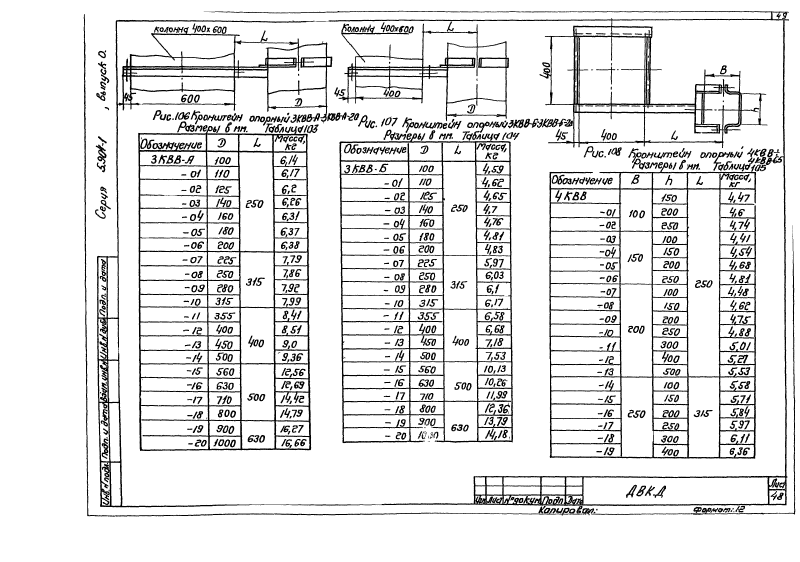 49
Серия 5.904-1, выпуск 0.
колонна 400×600
L
D
45
600
Рис.106 Кронштейн опорный 3КВВ-А÷3КВВ-А-20
Размеры в мм. Таблица 103
Обозначение D L Масса, кг
3КВВ-А 100 250 6,14
-01 110 6,17
-02 125 6,2
-03 140 6,26
-04 160 6,31
-05 180 6,37
-06 200 6,38
-07 225 315 7,79
-08 250 7,86
-09 280 7,92
-10 315 7,99
-11 355 400 8,41
-12 400 8,51
-13 450 9,0
-14 500 9,36
-15 560 500 12,56
-16 630 12,69
-17 710 14,42
-18 800 14,79
-19 900 630 16,27
-20 1000 16,66
колонна 400×600
L
D
45
400
Рис. 107 Кронштейн опорный 3КВВ-Б÷3КВВ-Б-20
Размеры в мм. Таблица 104
Обозначение D L Масса, кг
3КВВ-Б 100 250 4,59
-01 110 4,62
-02 125 4,65
-03 140 4,7
-04 160 4,76
-05 180 4,81
-06 200 4,83
-07 225 315 5,97
-08 250 6,03
-09 280 6,1
-10 315 6,17
-11 355 400 6,58
-12 400 6,68
-13 450 7,18
-14 500 7,53
-15 560 500 10,13
-16 630 10,26
-17 710 11,99
-18 800 630 12,36
-19 900 13,79
-20 1000 14,18
400
B
h
45
400
L
Рис. 108 Кронштейн опорный 4КВВ÷
Размеры в мм. Таблица 105
Обозначение B h L Масса, кг
4КВВ 100 150 250 4,47
-01 200 4,6
-02 250 4,74
-03 150 100 4,41
-04 150 4,54
-05 200 4,68
-06 250 4,81
-07 200 100 4,48
-08 150 4,62
-09 200 4,75
-10 250 4,88
-11 300 5,01
-12 400 5,27
-13 500 5,53
-14 250 100 315 5,58
-15 150 5,71
-16 200 5,84
-17 250 5,97
-18 300 6,11
-19 400 6,36
Инв.№ подл. Подп. и дата Взам. инв.№ Инв.№ дубл. Подп. и дата
Изм. Лист № докум. Подп. Дата
ДВКД
Лист
48
Копировал:
Формат: 12